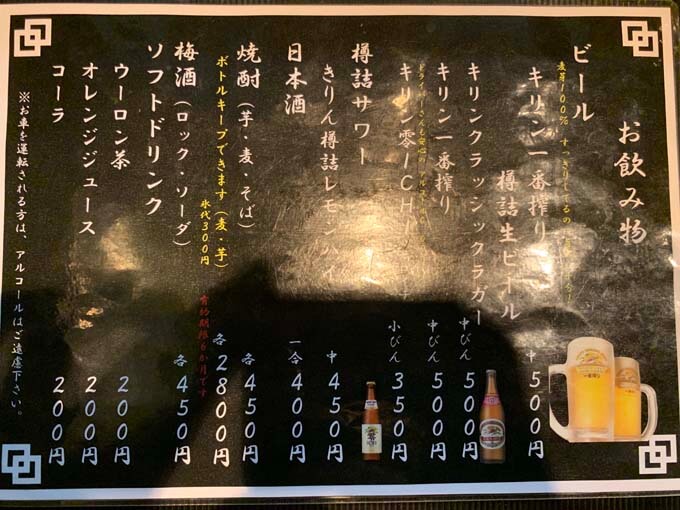 お飲み物
ビール
麦芽100% すっきりしてるの
キリン一番搾り
樽詰生ビール 中 500円
キリンクラッシックラガー 中びん 500円
キリン一番搾り 中びん 500円
ドライバーさんも安心の
キリン零ICHI 小びん 350円
樽詰サワー
きりん樽詰レモンハイ 中 450円
日本酒 一合 400円
焼酎(芋・麦・そば) 各 450円
ボトルキープできます(麦・芋) 各 2800円
氷代300円 有効期限6か月です
梅酒(ロック・ソーダ) 各 450円
ソフトドリンク
ウーロン茶 200円
オレンジジュース 200円
コーラ 200円
※お車を運転される方は、アルコールはご遠慮下さい。